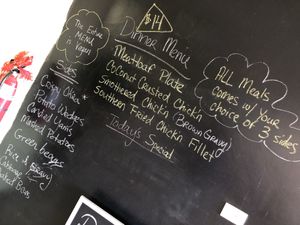 The Entire
MENU
is
Vegan
$14
Dinner Menu
Meatloaf Plate
Coconut Crusted Chickn
Smothered Chickn (Brown Gravy)
Southern Fried Chickn Fillet
Today's
Special
ALL Meals
comes w/ your
choice of 3 sides
Sides
Corn
Okra
Potato Wedges
Candied Yams
Mashed Potatoes
Green beans
Rice & Gravy
Cabbage
Baked Beans